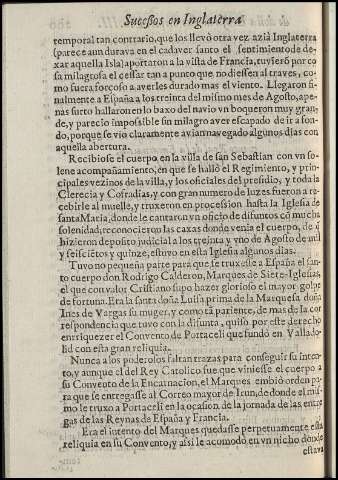 Sucessos en Inglaterra
temporal tan contrario, que los lleuò otra vez azià Inglaterra
(parece aun duraua en el cadaver santo el sentimiento de de-
xar aquella Isla) aportaron a la vista de Francia, tuvierõ por co
sa milagrosa el cessar tan a punto que no diessen al traves, co-
mo sucra forçoso a averles durado mas el viento. Llegaron fi-
nalmente a España a los treinta del mismo mes de Agosto, ape-
nas surto hallaron en lo baxo del navio vn boqueron muy gran-
de, y parecio impossible sin milagro aver escapado de ir a fon-
do, porque se viò claramente avian navegado algunos dias con
aquella abertura.
Recibiose el cuerpo en la villa de san Sebastian con vn so-
lene acompañamiento, en que se hallò el Regimiento, y prin-
cipales vezinos de la villa, y los oficiales del presidio, y toda la
Clerecia y Cofradias, y con gran numero de luzes fueron a re-
cebirle al muelle, y truxeron en procession hasta la Iglesia de
santa Maria, donde le cantaron vn oficio de difuntos cõ mucha
solenidad; reconocierõ las caxas donde venia el cuerpo, de q̃
hizieron deposito judicial a los treinta y vno de Agosto de mil
y seiscietos y quinze, estuvo en esta Iglesia algunos dias.
Tuvo no pequeña parte para que se truxesse a España el san-
to cuerpo don Rodrigo Calderon, Marques de Siete-Iglesias,
el que con valor Cristiano supo hazer glorioso el mayor golpe
de fortuna. Era la santa doña Luisa prima de la Marquesa doña
Ines de Vargas su muger, y como tã pariente, de mas de la cor
respondencia que tuvo con la difunta, quiso por este derecho
enrriquezer el Convento de Portaceli que fundò en Vallado-
lid con esta gran reliquia.
Nunca a los poderosos faltan trazas para conseguir su inten-
to, y aunque el del Rey Catolico fue que viniesse el cuerpo a
su Convento de la Encarnacion, el Marques embiò orden pa-
ra que se entregasse al Correo mayor de Irun, de donde el mis-
mo le truxo a Portaceli en la ocasion de la jornada de las entre
gas de las Reynas de España y Francia.
Era el intento del Marques quedasse perpetuamente esta
reliquia en su Convento, y assi le acomodò en vn nicho donde
estava